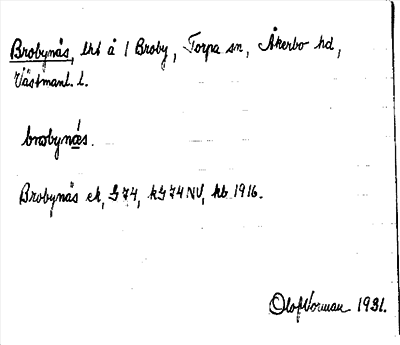 Brobynäs, lht å 1 Broby, Torpa sn, Åkerbo hd,
Västmanl. l.
brobynæ̀s.
Brobynäs ek, G 74, kG 74 NV, hb 1916.
Olof Norman 1931.